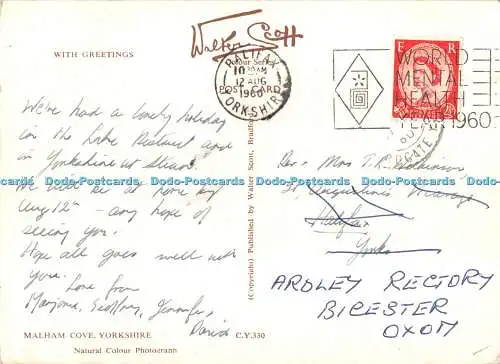 WITH GREETINGS
Walter Scott
"Colour Series"
POST CARD
HALIFAX
10 30AM
12 AUG
1960
YORKSHIRE
E R
WORLD
MENTAL
HEALTH
1960
We've had a lovely holiday
on the Lake District and
in Yorkshire
We will be at home by
Aug 12th – any hope of
seeing you.
Hope all goes well with
you. Love from
Marjorie, Geoffrey, Jennifer,
David
MALHAM COVE, YORKSHIRE C.Y.330
Natural Colour Photograph
(Copyright) Published by Walter Scott, Bradford
Rev & Mrs T.R.
St Augustines
Halifax
Yorks
ARDLEY RECTORY
BICESTER
OXON
Dodo-Postcards Dodo-Postcards Dodo-Postcards Dodo-Postcards Dodo-Postcards
Dodo-Postcards Dodo-Postcards Dodo-Postcards Dodo-Postcards Dodo-Postcards